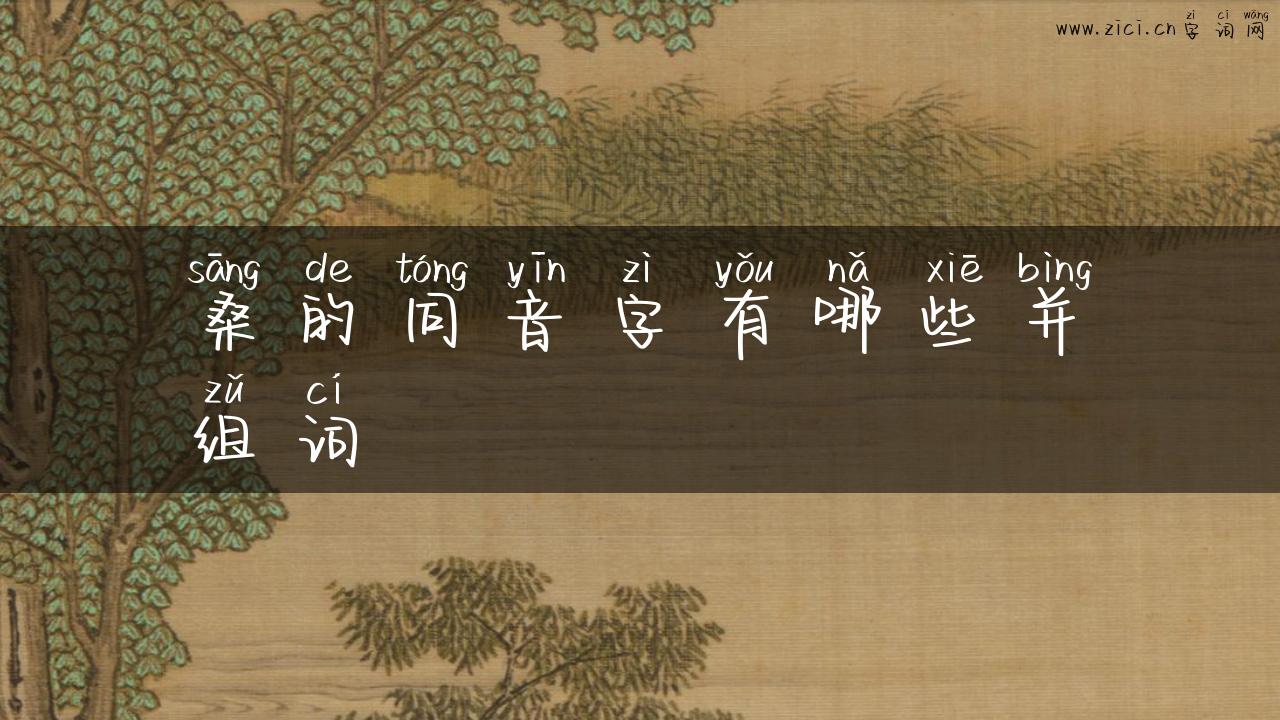 zì cí wǎng
www.zici.cn字词网
sāng de tóng yīn zì yǒu nǎ xiē bìng
桑的同音字有哪些并
zǔ cí
组词